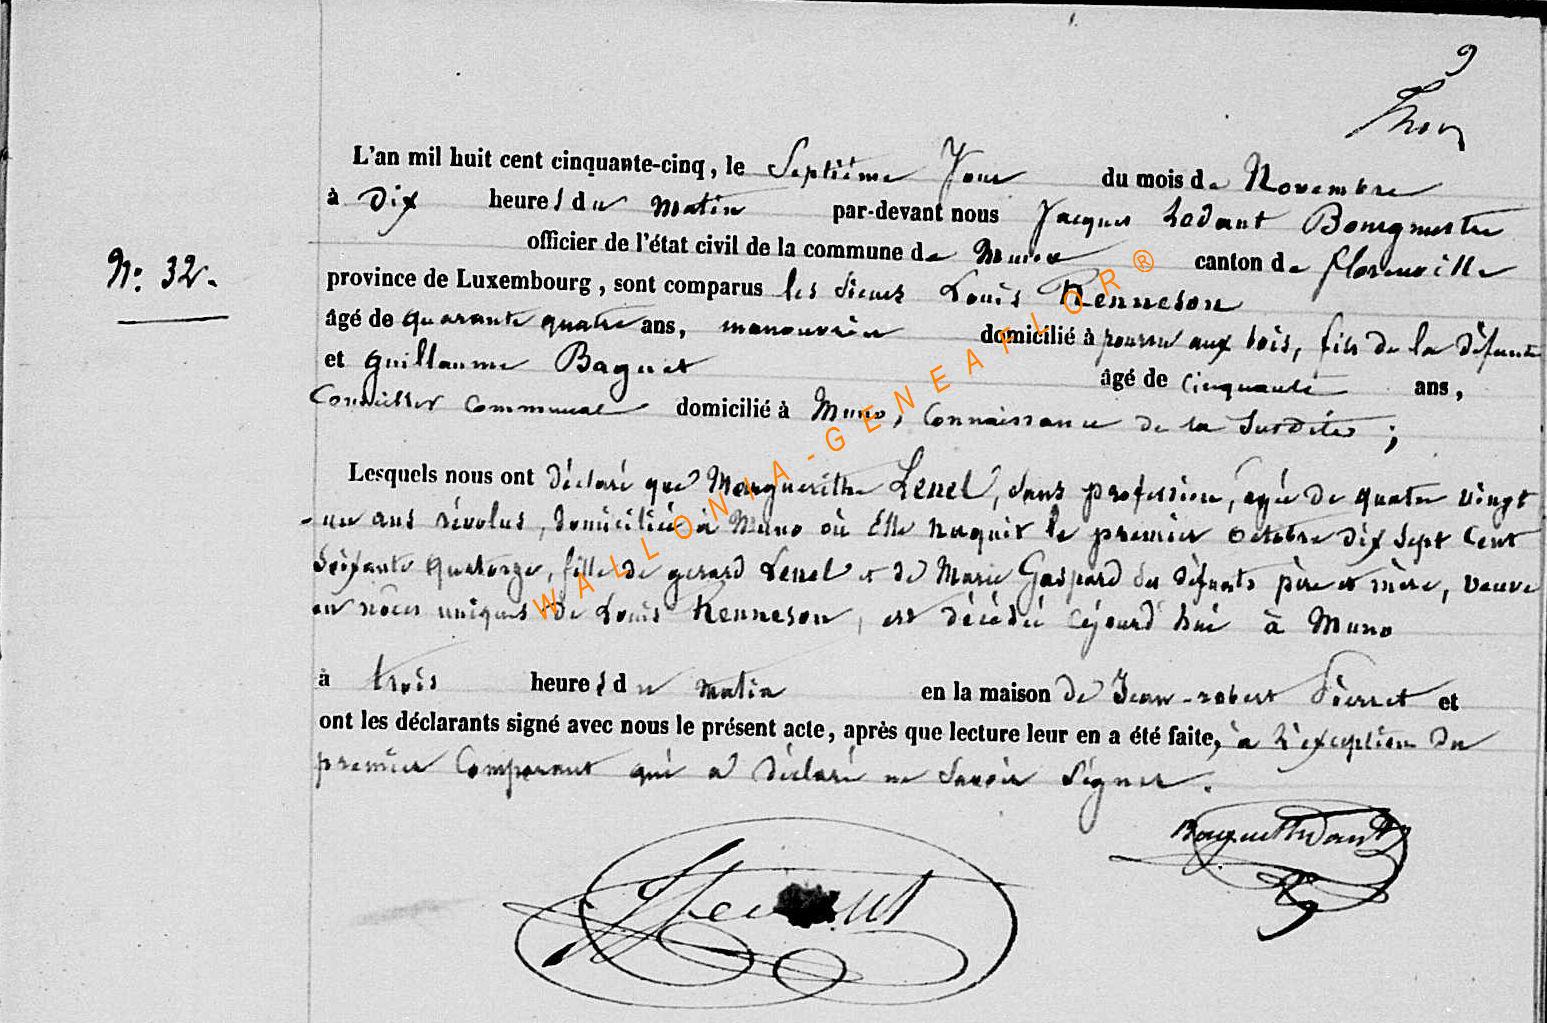 9
N.º 32.
L'an mil huit cent cinquante-cinq, le Septième Jour du mois de Novembre
à Dix heures du Matin par-devant nous Jacques Ledant Bourgmestre
officier de l'état civil de la commune de Muno canton de florenville
province de Luxembourg, sont comparus les Sieurs Louis Renneson
âgé de quarante quatre ans, manouvrier domicilié à pourru aux bois, fils de la défunte
et Guillaume Baguet âgé de cinquante ans,
Conseiller communal domicilié à Muno, Connaissance de la Susdite;
Lesquels nous ont déclaré que Marguerithe Lenel, sans profession, agée de quatre vingt
-un ans révolus, domiciliée à Muno où Elle naquit le premier octobre dix Sept Cent
Soixante quatorze, fille de gerard Lenel et de Marie Gaspard ses défunts père et mère, veuve
en nôces uniques de Louis Renneson, est décédée cejourd'hui à Muno
à trois heures du matin en la maison de Jean-robert Pierret et
ont les déclarants signé avec nous le présent acte, après que lecture leur en a été faite, à l'exception du
premier Comparant qui a déclaré ne Savoir Signer.
WALLONIA-GENEAFLOR®